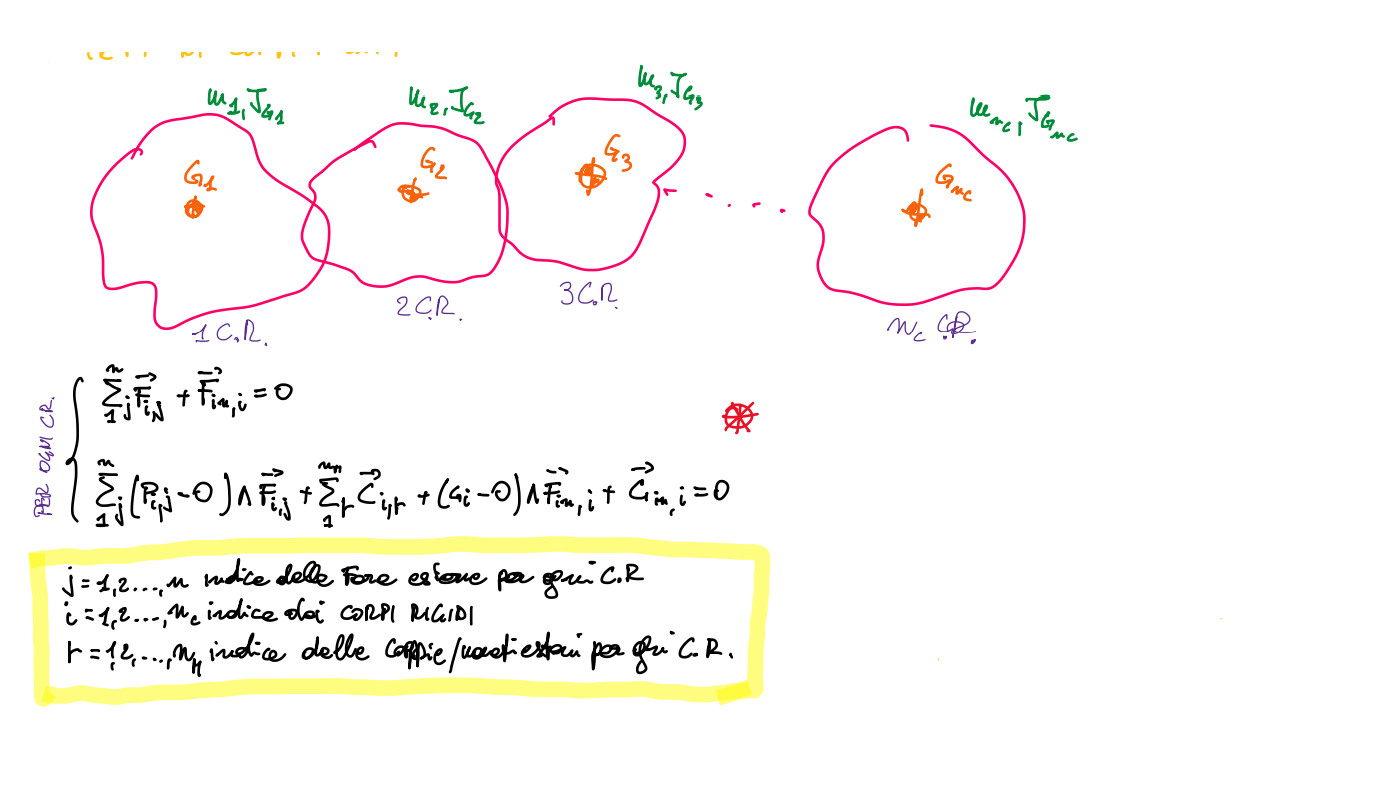 m₁, J_G1
m₂, J_G2
m₃, J_G3
m_nc, J_Gnc
G₁
G₂
G₃
G_nc
1 C.R.
2 C.R.
3 C.R.
n_c C.R.
PER OGNI C.R.
∑₁ⁿ j F⃗_i,j + F⃗_in,i = 0
∑₁ⁿ j (P_i,j - O) ∧ F⃗_i,j + ∑₁ r C⃗_i,r + (G_i - O) ∧ F⃗_in,i + C⃗_in,i = 0
j = 1,2...,n indice delle Forze esterne per ogni C.R
i = 1,2...,n_c indice dei CORPI RIGIDI
r = 1,2,...,n_M indice delle coppie/momenti esterni per ogni C.R.